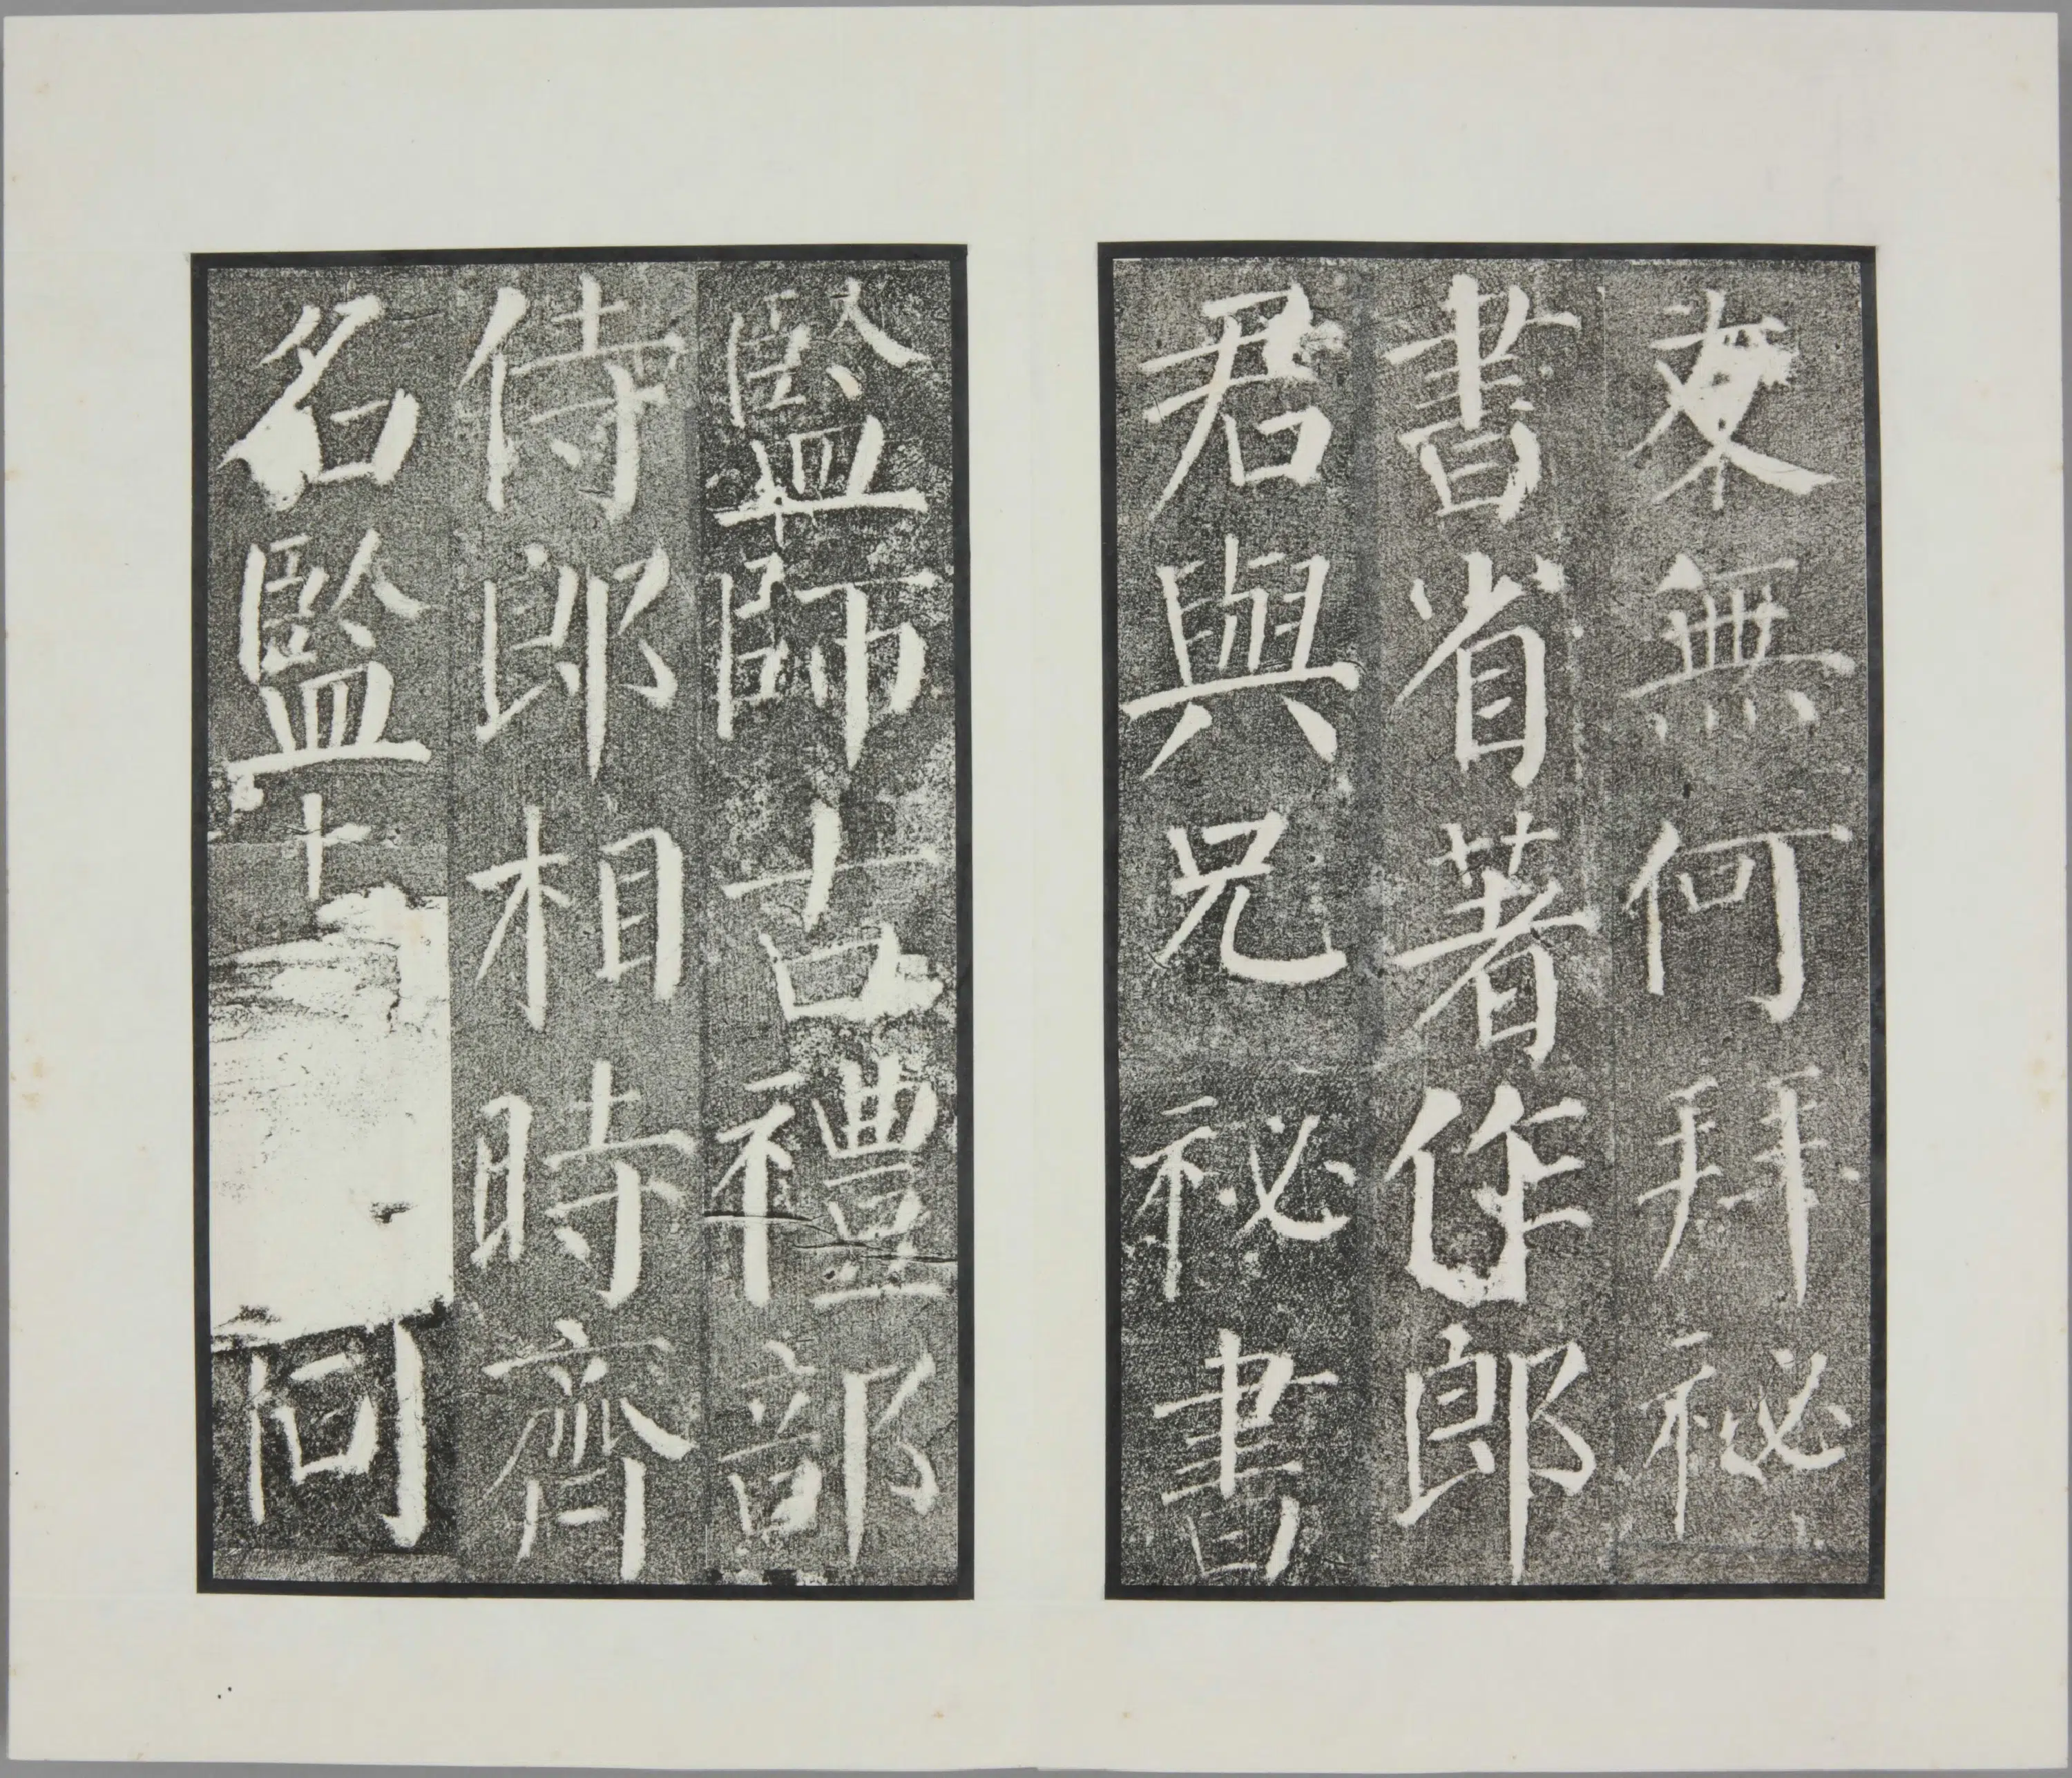 友無何拜祕
書省著作郎
君與兄祕書
監師古禮部
侍郎相時齊
名監同